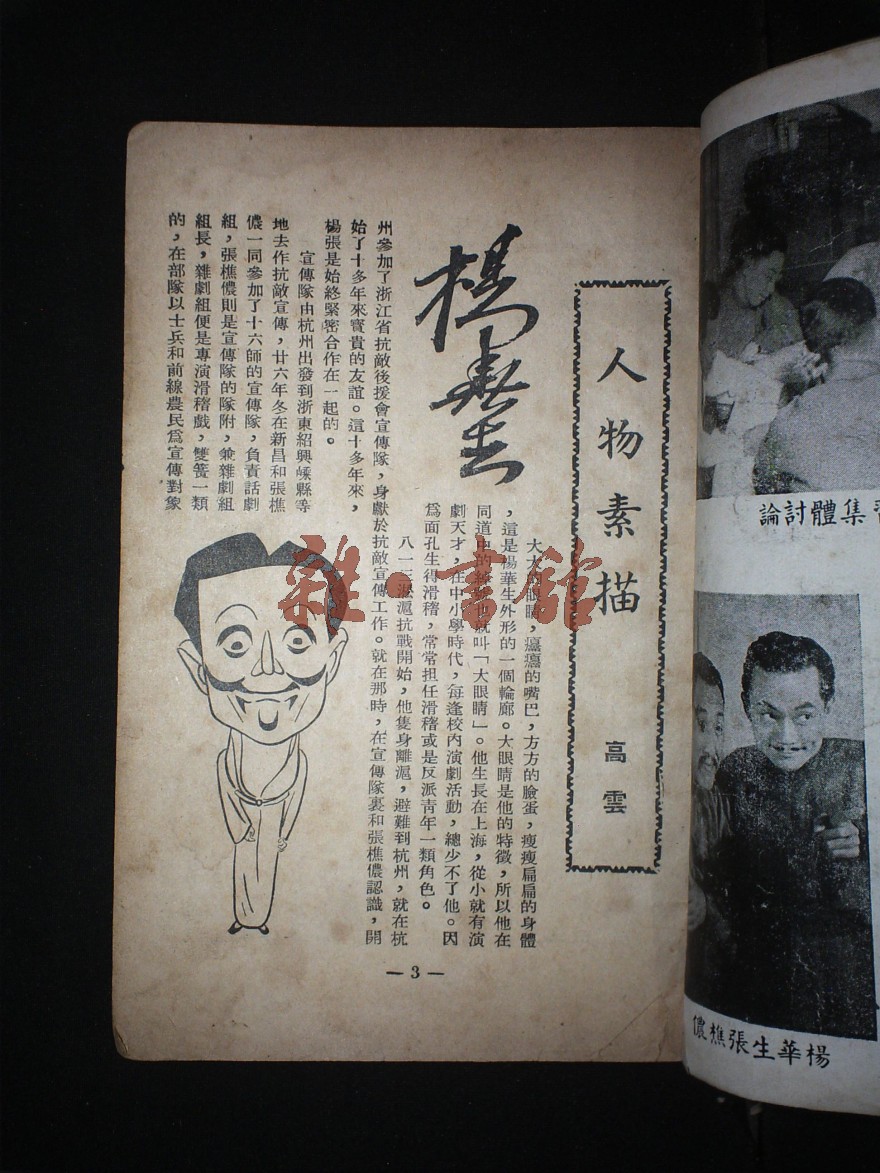 人物素描
高雲
楊華生
大大的眼睛，癟癟的嘴巴，方方的臉蛋，瘦瘦扁扁的身體
，這是楊華生外形的一個輪廓。大眼睛是他的特徵，所以他在
同道中的綽號也就叫「大眼睛」。他生長在上海，從小就有演
劇天才，在中小學時代，每逢校內演劇活動，總少不了他。因
爲面孔生得滑稽，常常担任滑稽或是反派靑年一類角色。
八一三淞滬抗戰開始，他隻身離滬，避難到杭州，就在杭
州參加了浙江省抗敵後援會宣傳隊，身獻於抗敵宣傳工作。就在那時，在宣傳隊裏和張樵儂認識，開
始了十多年來寶貴的友誼。這十多年來，
楊張是始終緊密合作在一起的。
宣傳隊由杭州出發到浙東紹興嵊縣等
地去作抗敵宣傳，廿六年冬在新昌和張樵
儂一同參加了十六師的宣傳隊，負責話劇
組，張樵儂則是宣傳隊的隊附，兼雜劇組
組長，雜劇組便是專演滑稽戲，雙簧一類
的，在部隊以士兵和前線農民爲宣傳對象
— 3 —
論討體集習
儂樵張生華楊
雜·書館